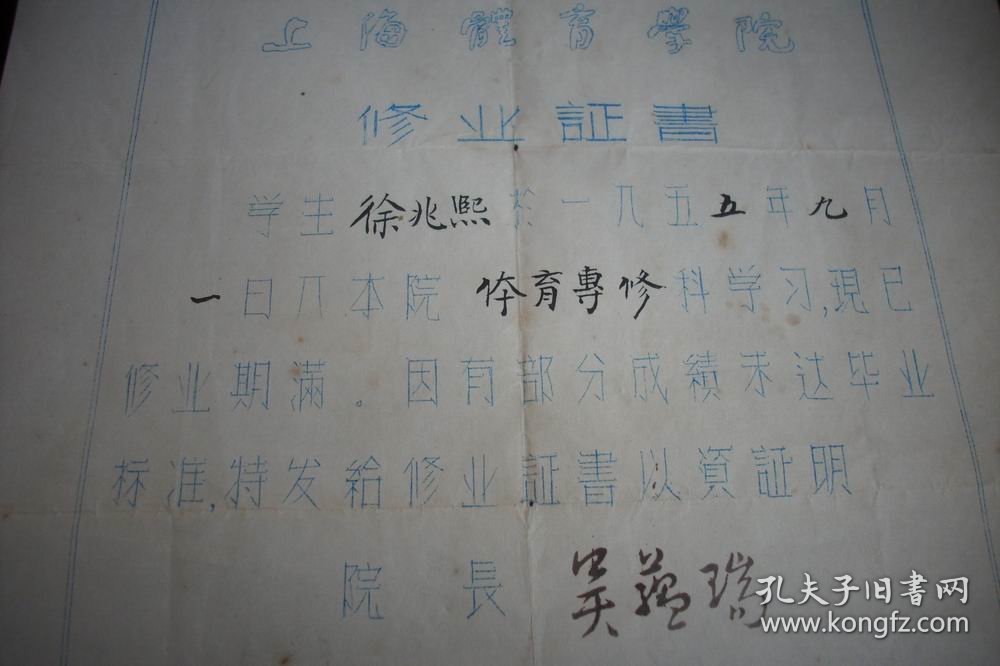 上海體育學院
修业証書
学生徐兆熙於一九五五年九月
一日入本院体育專修科学习,現已
修业期滿。因有部分成績未达毕业
标准,特发給修业証書以資証明
院長 吴蕴瑞
孔夫子旧书网
www.kongfz.com